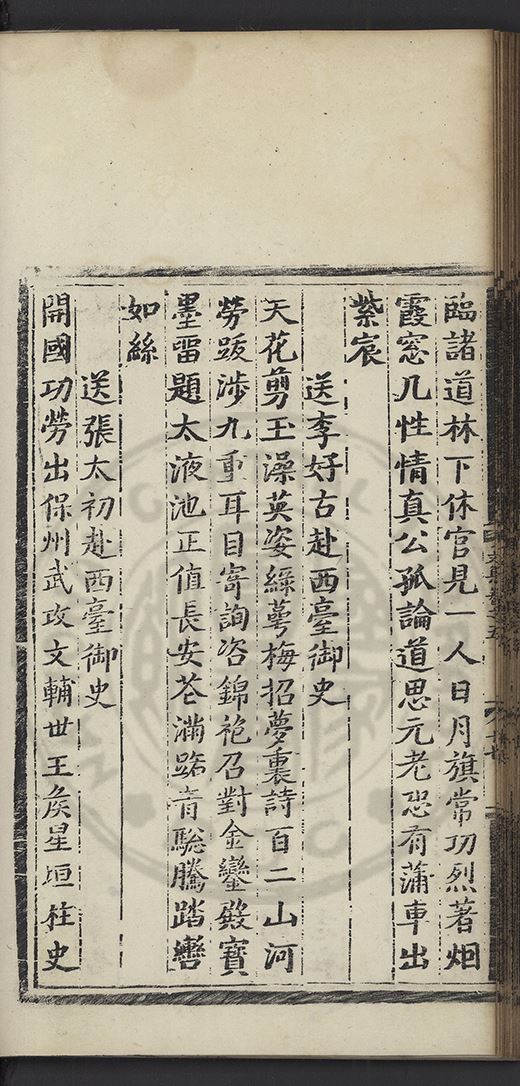 臨諸道林下休官見一人日月旗常功烈著烟
霞窓几性情真公孤論道思元老恐有蒲車出
紫宸
送李好古赴西臺御史
天花剪玉澡英姿綠萼梅招夢裏詩百二山河
勞跋渉九重耳目寄詢咨錦袍召對金鑾殿寳
墨留題太液池正值長安花滿路青騘騰踏轡
如絲
送張太初赴西臺御史
開國功勞出保州武攻文輔世王侯星垣柱史